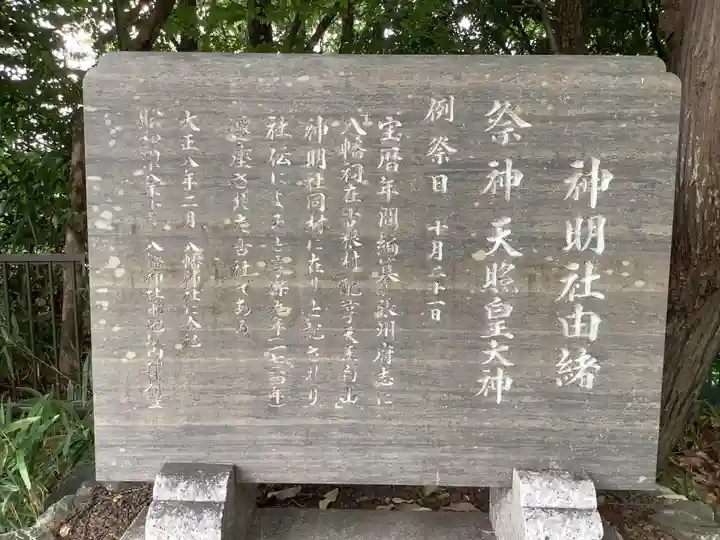 神明社由緒
祭神 天照皇大神
例祭日 十月二十一日
宝暦年間編纂の張州府志に
「八幡祠在古根村配享天王白山」
神明社同村に在りと記されり
社伝によると享保九年(一七二四年)
鎮座された古社である
大正八年二月 八幡神社に合祀
昭和 年十月 八幡神社 地内